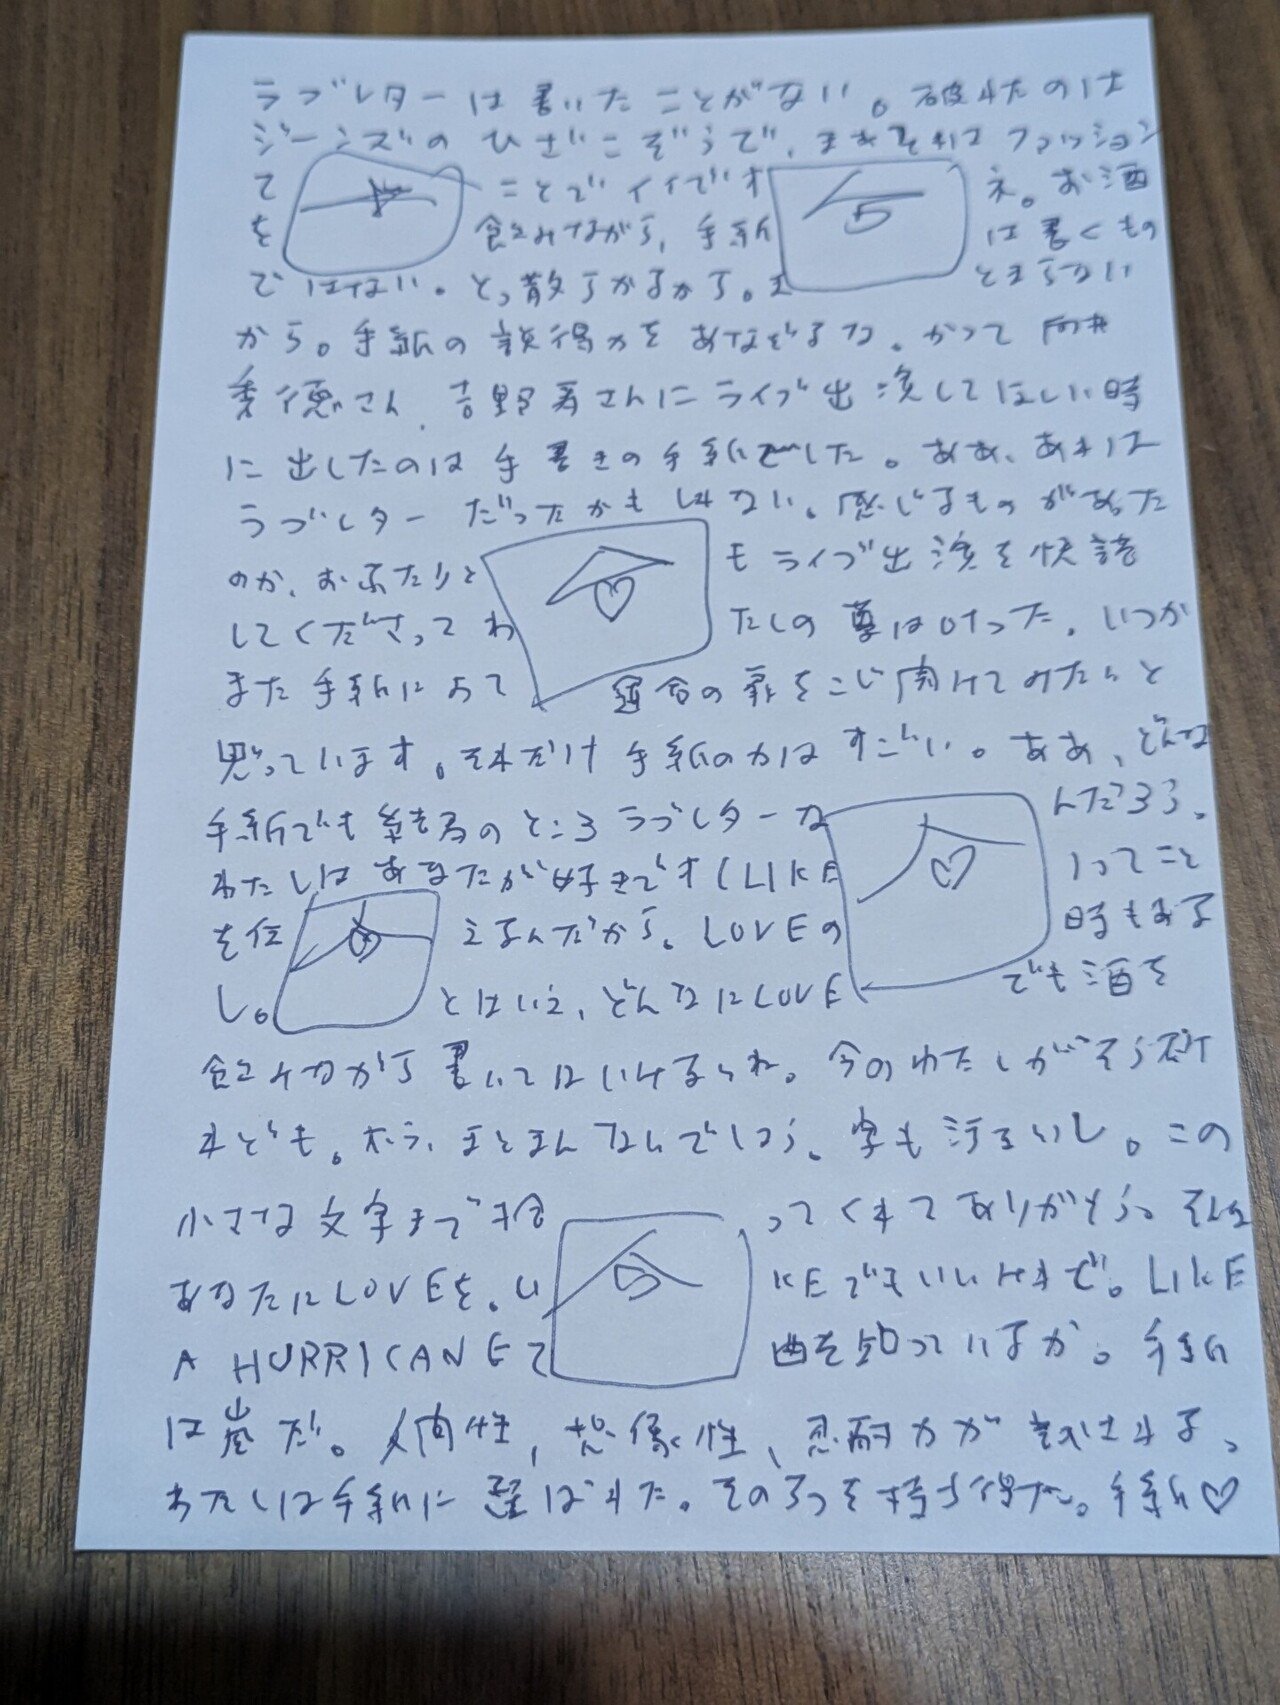 ラブレターは書いたことがない。破れたのは
ジーンズのひざこぞうで、まあそれはファッション
て ことでイイです ネ。お酒
を 飲みながら、手紙 は書くもの
ではない。とっ散らかるから。ま とまらない
から。手紙の説得力をあなどるな。かつて向井
秀徳さん、吉野寿さんにライブ出演してほしい時
に出したのは手書きの手紙でした。ああ、あれは
ラブレターだったかもしれない。感じるものがあった
のか、おふたりと もライブ出演を快諾
してくださってわ たしの 夢は叶った。いつか
また手紙によって 運命の扉をこじ開けてみたいと
思っています。それだけ手紙の力はすごい。ああ、どんな
手紙でも結局のところラブレターな んだろう。
わたしはあなたが好きです(LIKE )ってこと
を伝 えるんだから。LOVEの 時もある
し。 とはいえ、どんなにLOVE でも酒を
飲みながら書いてはいけませんね。今のわたしがそうだけ
れども。ホラ、まとまんないでしょう。字も汚いし。この
小さな文字まで拾 ってくれてありがとう。そんな
あなたにLOVEを。LI KEでもいいけれど。LIKE
A HURRICANEて 曲を知っているか。手紙
は嵐だ。人間性、想像性、忍耐力が試される。
わたしは手紙に選ばれた。その3つを持ち得た。手紙♡